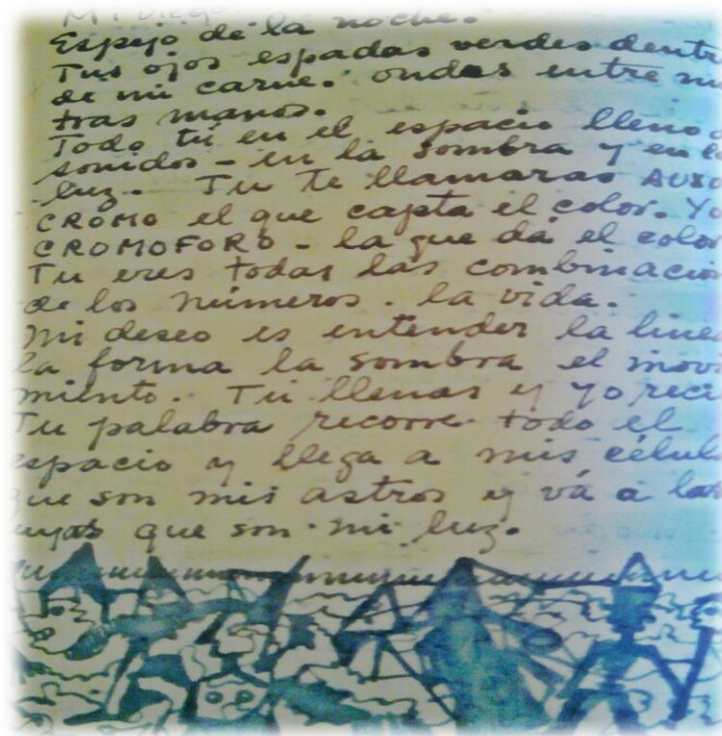 Mi Diego.
Espejo de la noche.
Tus ojos espadas verdes dentr
de mi carne. ondas entre nu
tras manos.
Todo tú en el espacio lleno d
sonidos - en la sombra y en la
luz. Tu te llamaras AUXO
CROMO el que capta el color. Yo
CROMOFORO - la que dá el color
Tu eres todas las combinacio
de los números. la vida.
mi deseo es entender la linea
la forma la sombra el movi
miento. Tu llenas y yo reci
Tu palabra recorre todo el
espacio y llega a mis célula
que son mis astros y vá a las
tuyas que son mi luz.